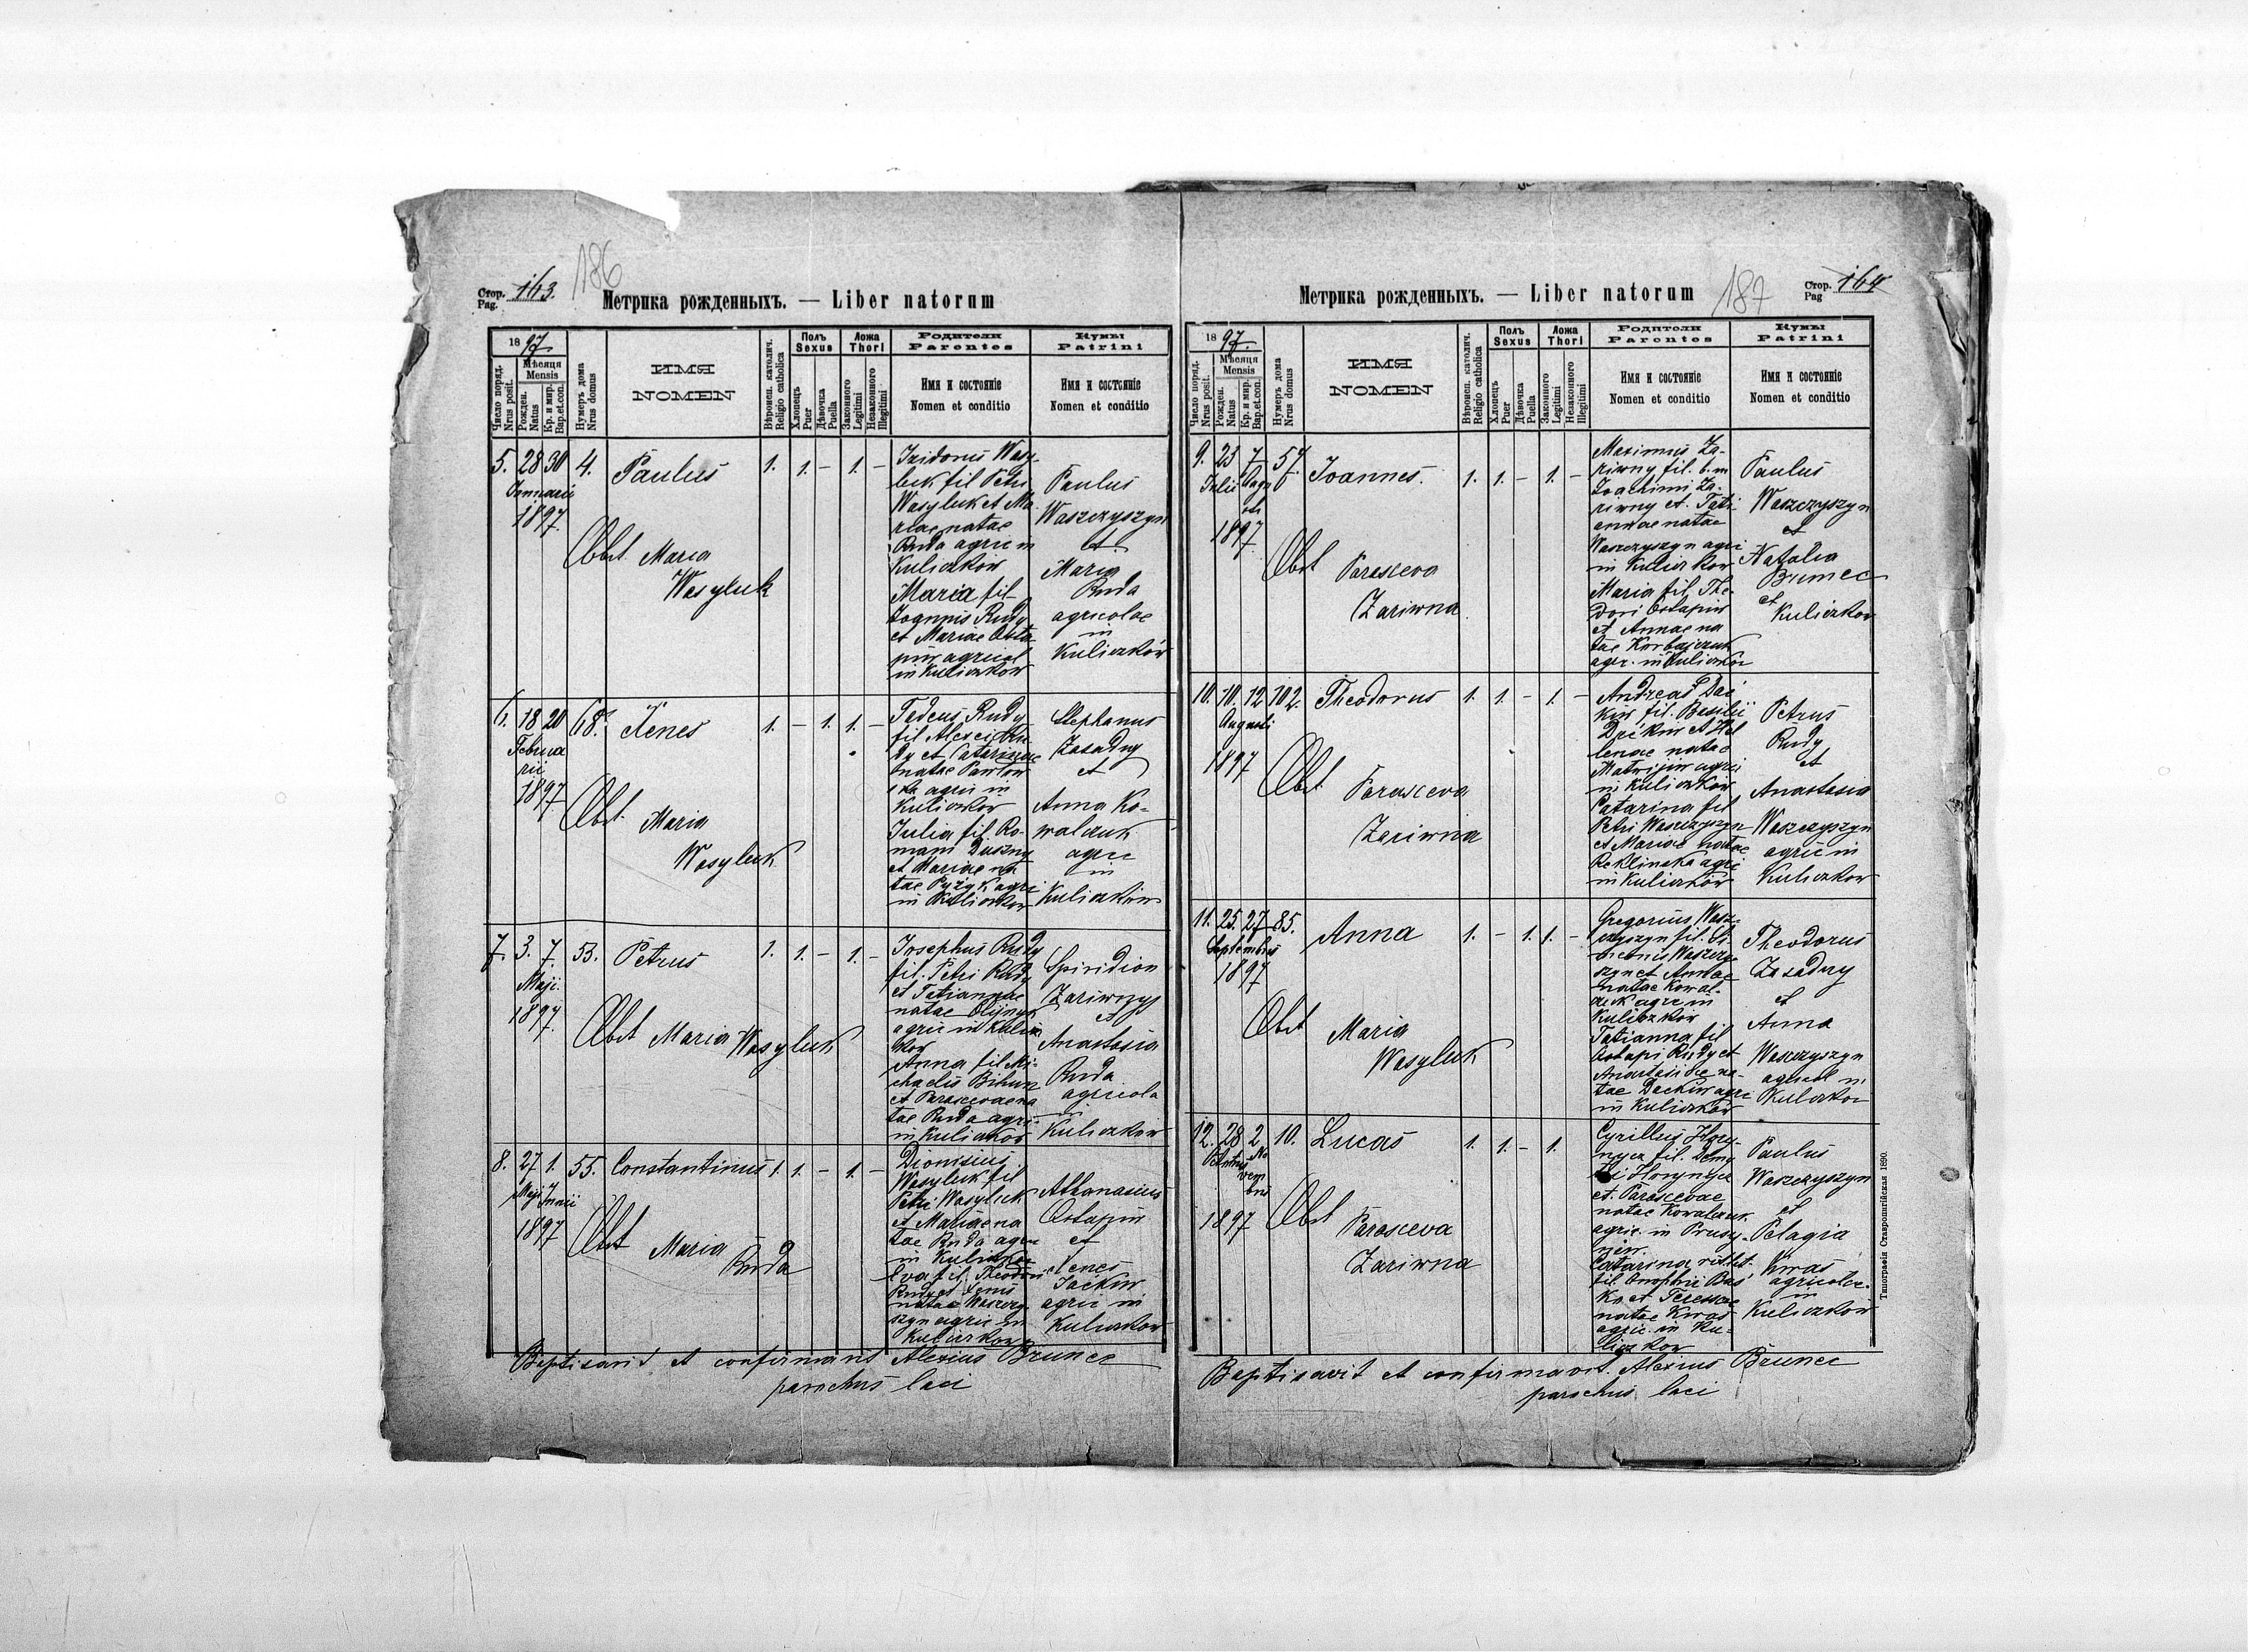 Стор. Pag. 163.
186
Метрика рожденныхъ. — Liber natorum
1897.
Число поряд. Nrus posit.
Мѣсяця Mensis
Рожден. Natus
Кр. и мир. Bap. et con.
Нумеръ дома Nrus domus
ИМЯ
NOMEN
Вѣроисп. католич. Religio catholica
Полъ Sexus
Хлопець Puer
Дѣвочка Puella
Ложа Thori
Законного Legitimi
Незаконного Illegitimi
Родители
Parentes
Имя и состояніе
Nomen et conditio
Кумы
Patrini
Имя и состояніе
Nomen et conditio
5. 28 30 4. Paulus 1. 1. – 1. –
Januarii
1897
Obst. Maria
Wasyluk
Izidorus Wasy-
luk fil Petri
Wasyluk et Ma-
riae natae
Ruda agric in
Kuliczkow
Maria fil
Joannis Rudy
et Mariae Osta
piw agricol
in Kuliczkow
Paulus
Waszczyszyn
et
Maria
Ruda
agricolae
in
Kuliczków
6. 18 20 68. Xenes 1. – 1. 1. –
Februa
rii
1897
Obst. Maria
Wasyluk
Fedeus Rudy
fil Alexei Ru-
dy et Catarinae
natae Pawlow
ska agric in
Kuliczkow
Julia fil Ro-
mani Duszny
et Mariae na
tae Pyżyk agri
in Kuliczkow
Stephanus
Zasadny
et
Anna Ko-
walczuk
agric
in
Kuliczków
7. 3. 7. 53. Petrus 1. 1. – 1. –
Maji
1897.
Obst Maria Wasyluk
Josephus Rudy
fil. Petri Rudy
et Tatiannae
natae Olijnyk
agric in Kulicz
kow
Anna fil Mi-
chaelis Bihun
et Parascevae na
tae Ruda agri-
in Kuliczkow
Spiridion
Zariwnyj
et
Anastasia
Ruda
agricola
in
Kuliczkow
8. 27 1. 55. Constantinus 1. 1. – 1. –
Maji Junii
1897
Obst Maria
Ruda
Dionisius
Wasyluk fil
Petri Wasyluk
et Mariae na
tae Ruda agric
in Kuliczkow
Eva fil. Theodori
Rudy et Xenis
natae Waszczy-
szyn agric in
Kuliczkow
Athanasius
Ostapiw
et
Xenes
Jackiw
agric in
Kuliczkow
Baptisavit et confirmavit Alexius Brunec
parochus loci
Метрика рожденныхъ. — Liber natorum
187
Стор. Pag 164
1897.
Число поряд. Nrus posit.
Мѣсяця Mensis
Рожден. Natus
Кр. и мир. Bap. et con.
Нумеръ дома Nrus domus
ИМЯ
NOMEN
Вѣроисп. католич. Religio catholica
Полъ Sexus
Хлопець Puer
Дѣвочка Puella
Ложа Thori
Законного Legitimi
Незаконного Illegitimi
Родители
Parentes
Имя и состояніе
Nomen et conditio
Кумы
Patrini
Имя и состояніе
Nomen et conditio
9. 23 7 57. Joannes. 1. 1. – 1. –
Julii Augu
sti
1897.
Obst Parasceva
Zariwna
Maximus Za-
riwny fil. b. m
Joachimi Za-
riwny et Tati
annae natae
Waszczyszyn agri
in Kuliczkow
Maria fil. The-
dori Ostapiw
et Annae na
tae Korbajczuk
agr. in Kuliczkow
Paulus
Waszczyszyn
et
Natalia
Brunec
et
Kuliczkow
10. 10. 12 102. Theodorus 1. 1. – 1. –
Augusti
1897
Obst. Parasceva
Zariwna
Andreas Dac
kiw fil. Basilii
Dackiw et Hel
lenae natae
Matwijiw agri
in Kuliczkow
Catarina fil
Petri Waszczyszyn
et Mariae natae
Reklinska agri
in Kuliczkow
Petrus
Rudy
et
Anastasia
Waszczyszyn
agric in
Kuliczkow
11. 25. 27 85. Anna 1. – 1. 1. –
Septembris
1897
Obst Maria
Wasyluk
Gregorius Wasz-
czyszyn fil. Si-
meonis Waszczy-
szyn et Annae
natae Kowal-
czuk agric in
Kuliczkow
Tatianna fil
Ostapi Rudy et
Anastasiae na-
tae Dackiw agri
in Kuliczkow
Theodorus
Zasadny
et
Anna
Waszczyszyn
agricol in
Kuliczkow
12. 28 2 10. Lucas 1. 1. – 1.
Octobris No
vem
bris
1897
Obst Parasceva
Zariwna
Cyrillus Hory-
nycz fil.
Horynycz
et. Parascevae
natae Kowalczuk
agric. in Prusy-
Catarina
fil. Onophrii Bas
ko et
natae Kwas
agric. in Ku-
liczkow
Paulus
Waszczyszyn
et
Pelagia
Kwas
agricolae
in
Kuliczkow
Baptisavit et confirmavit. Alexius Brunec
parochus loci
Типографія Ставропигійская 1890.